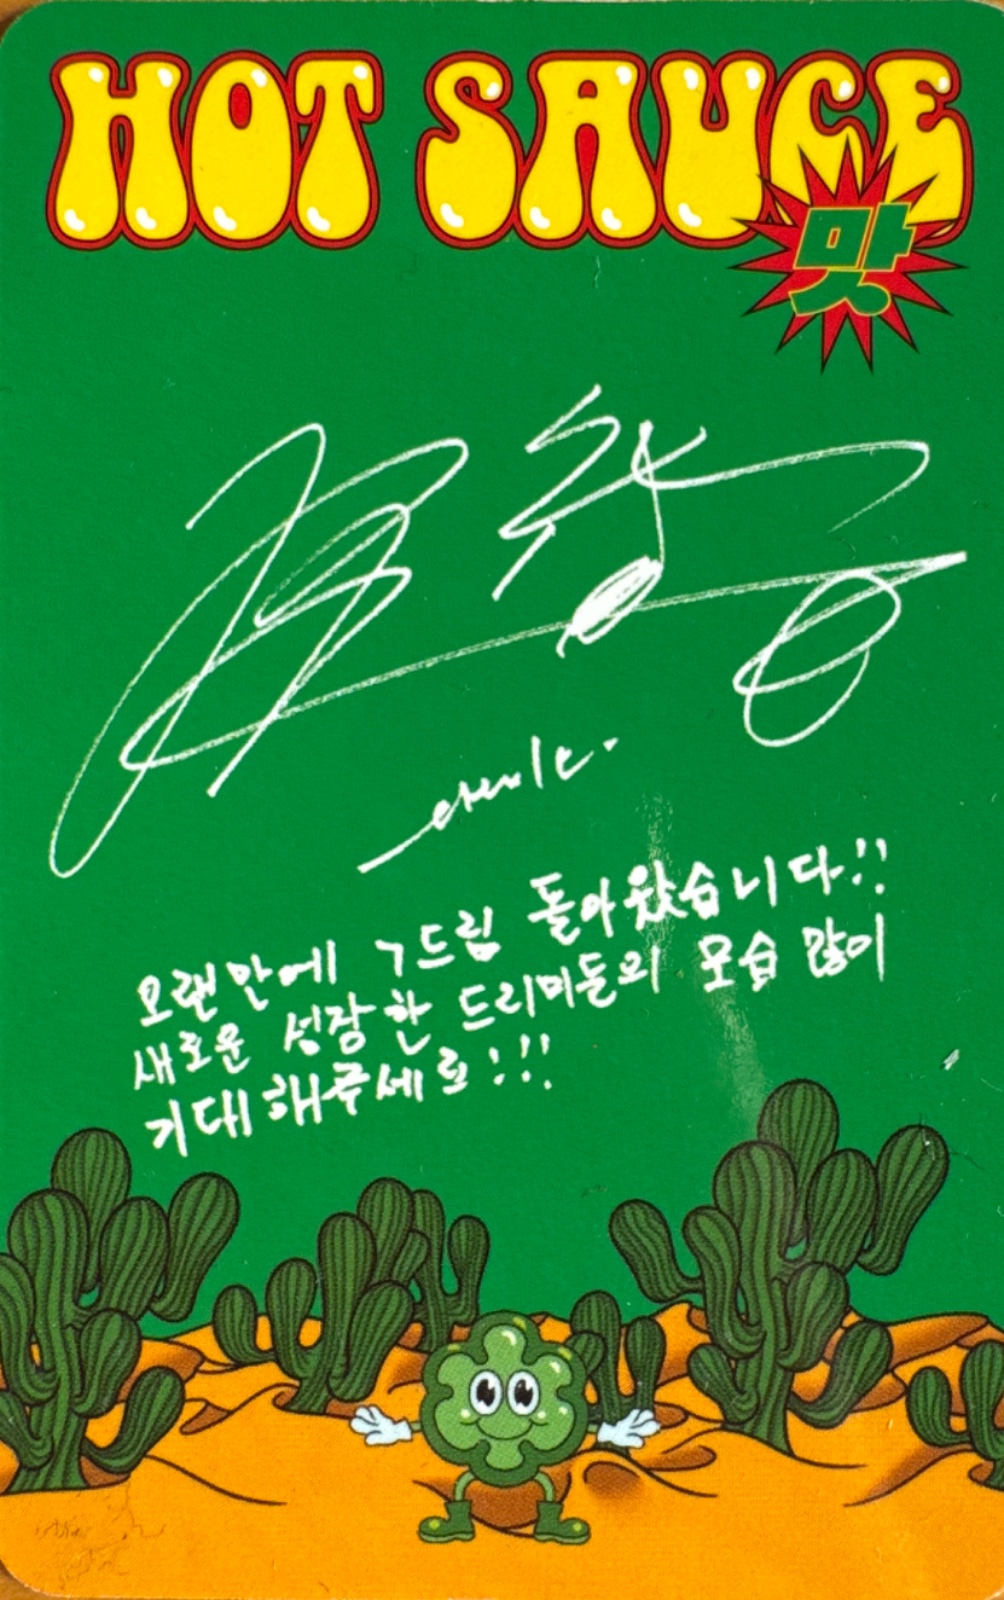 HOT SAUCE
맛
오랜만에 7드림 돌아왔습니다!!
새로운 성장한 드리미들의 모습 많이
기대해주세요!!!